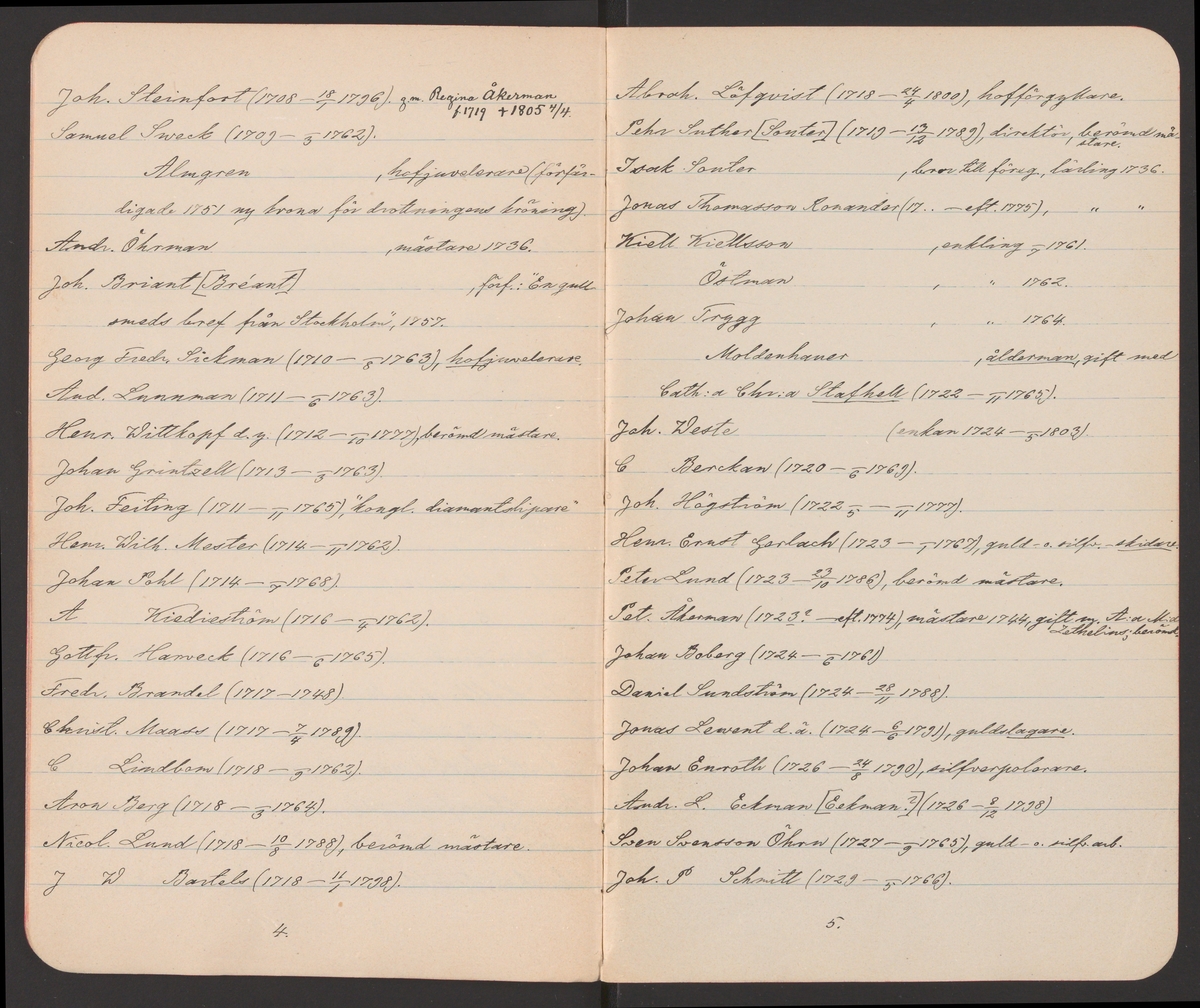 Joh. Steinfort (1708 – 18/1 1796). g.m. Regina Åkerman
f. 1719 + 1805 4/4.
Samuel Sweck (1709 – –/3 1762).
Almgren , hofjuvelerare (förfär-
digade 1751 ny krona för drottningens kröning).
Andr. Öhrman , mästare 1736.
Joh. Briant [Bréant] , förf.: "En guld-
smeds bref från Stockholm", 1757.
Georg Fredr. Sickman (1710 – –/8 1763), hofjuvelerare.
And. Lunnman (1711 – –/6 1763).
Henr. Wittkopf d.y. (1712 – –/10 1777), berömd mästare.
Johan Grintzell (1713 – –/3 1763).
Joh. Feiting (1711 – –/11 1765), "kongl. diamantslipare"
Henr. Wilh. Mester (1714 – –/11 1762).
Johan Pohl (1714 – –/7 1768).
A Kiedieström (1716 – –/4 1762).
Gottfr. Harweck (1716 – –/6 1765).
Fredr. Brandel (1717 – 1748)
Christ. Maass (1717 – 7/4 1789).
C Lindbom (1718 – –/9 1762).
Aron Berg (1718 – –/3 1764).
Nicol. Lund (1718 – 10/8 1788), berömd mästare.
J W Bartels (1718 – 11/1 1798).
4.
Abrah. Löfqvist (1718 – 24/4 1800), hofförgyllare.
Pehr Suther [Souter] (1719 – 13/12 1789), direktör, berömd mä-
stare.
Isak Souter , bror till föreg., lärling 1736.
Jonas Thomasson Ronander (17.. – eft. 1775), " "
Kiell Kiellsson , enkling –/7 1761.
Östman , " 1762.
Johan Trygg , " 1764.
Moldenhauer , ålderman, gift med
Cath:a Chr:a Stafhell (1722 – –/11 1765).
Joh. Weste (enkan 1724 – –/5 1803)
C Berckan (1720 – –/6 1769).
Joh. Högström (1722 –/5 – –/11 1777).
Henr. Ernst Gerlach (1723 – –/1 1767), guld- o. silfv.-skidare.
Peter Lund (1723 – 23/10 1786), berömd mästare.
Pet. Åkerman (1723? – eft. 1774), mästare 1744, gift m. A:a M:a
Zethelius; berömd
Johan Boberg (1724 – –/6 1761)
Daniel Sundström (1724 – 28/11 1788).
Jonas Lewent d.ä. (1724 – 6/6 1791), guldslagare.
Johan Enroth (1726 – 24/8 1790), silfverpolerare.
Andr. L. Eckman [Eekman?] (1726 – 8/12 1798)
Sven Svensson Öhrn (1727 – –/9 1765), guld- o. silfv. arb.
Joh. P Schmitt (1729 – –/5 1766).
5.